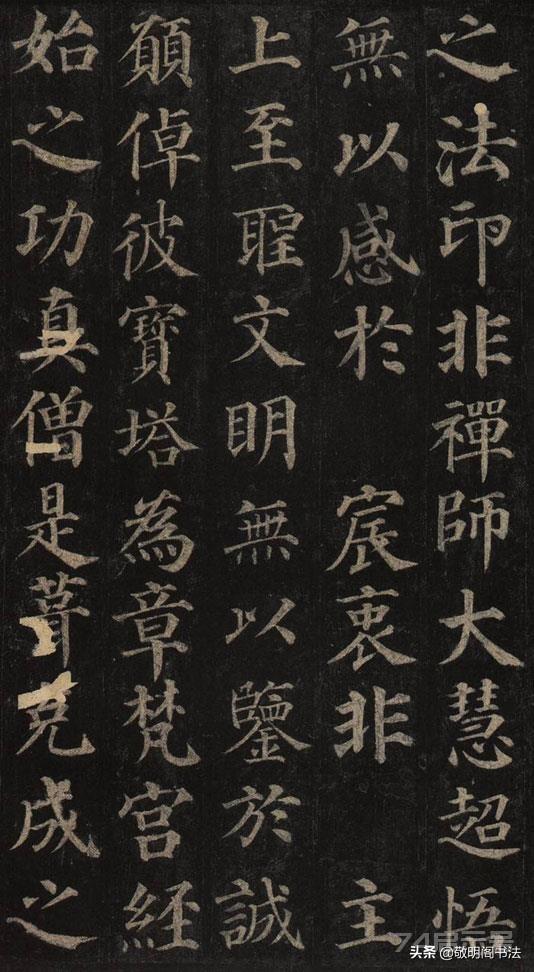 之法印非禪師大慧超悟
無以感於 宸衷非 主
上至聖文明無以鑒於誠
願倬彼寶塔為章梵宮經
始之功真僧是葺克成之
头条 @敬明阁书法